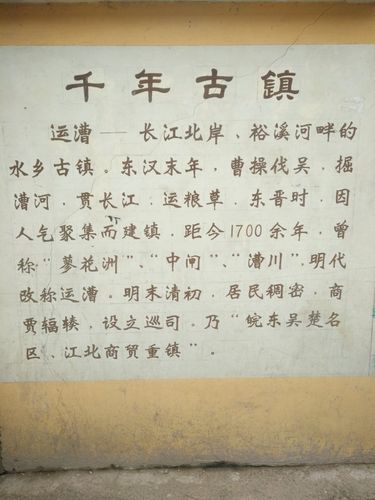 千年古镇
运漕——长江北岸、裕溪河畔的
水乡古镇。东汉末年，曹操伐吴，掘
漕河，贯长江，运粮草，东晋时，因
人气聚集而建镇，距今1700余年，曾
称“蓼花洲”、“中闸”、“漕川”，明代
改称运漕。明末清初，居民稠密，商
贾辐辏，设立巡司。乃“皖东吴楚名
区、江北商贸重镇”。